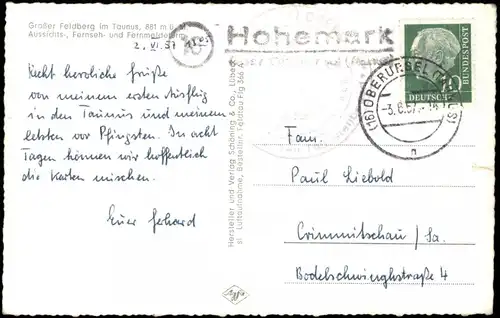 Großer Feldberg im Taunus, 881 m ü. M.
Aussichts-, Fernseh- und Fernmeldeturm
2. VI. 57
Recht herzliche Grüße
von meinem ersten Ausflug
in den Taunus und meinem
letzten vor Pfingsten. In acht
Tagen können wir hoffentlich
die Karten mischen.
Euer Gerhard
Hersteller und Verlag Schöning & Co., Lübeck
Luftaufnahme, Bestellnr. Feldbau Fig 366
Hohemark
(16) OBERURSEL (TAUNUS)
-3.6.57.-16
a
DEUTSCHE BUNDESPOST
10
Fam.
Paul Liebold
Crimmitschau / Sa.
Bodelschwinghstraße 4
Agfa